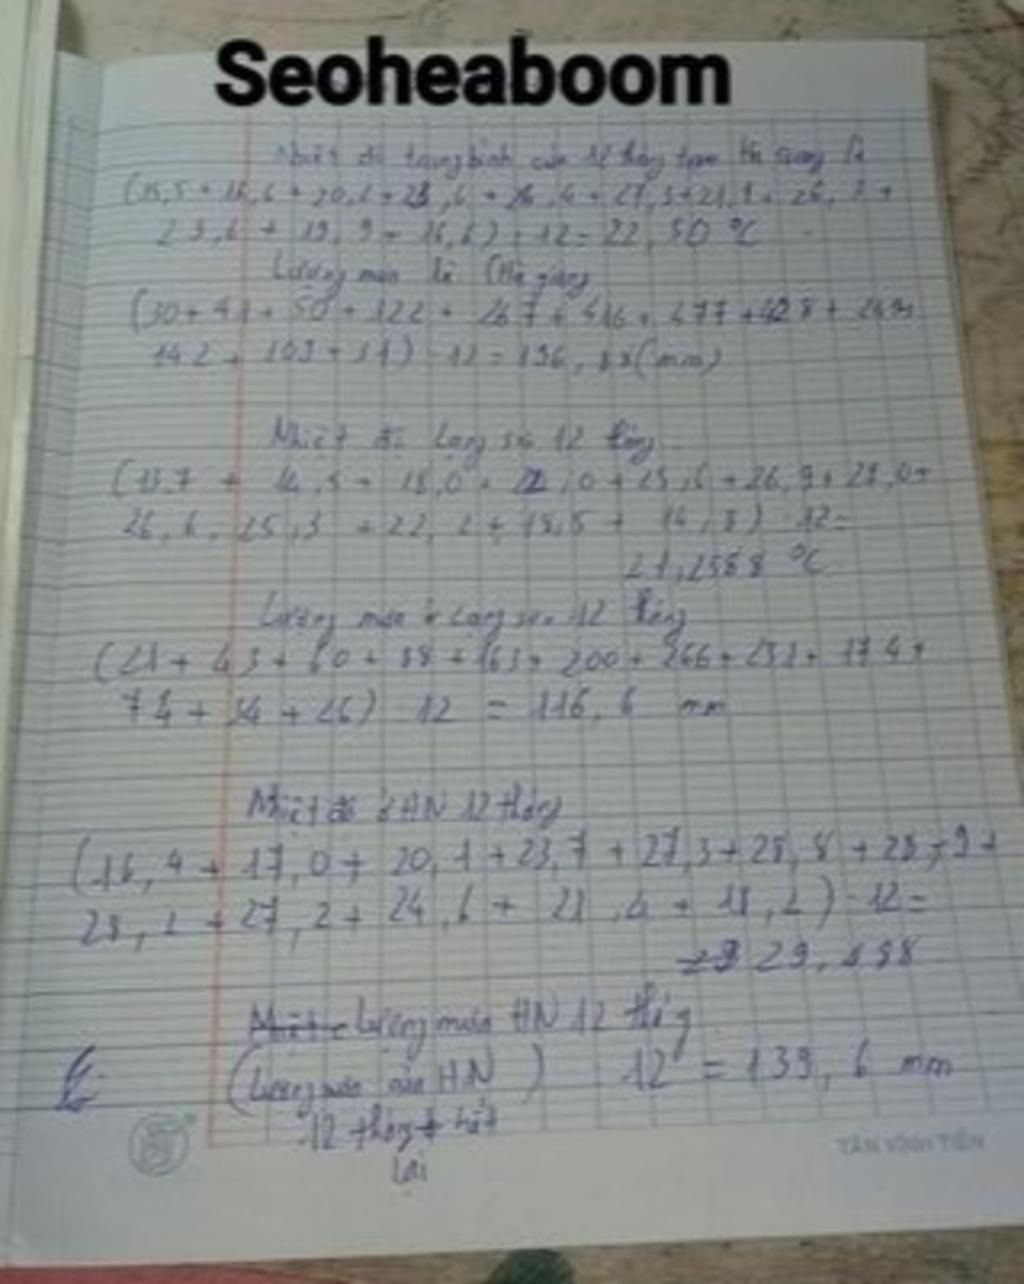 Seoheaboom
Nhiệt độ trung bình của 12 tháng trạm Hà Giang là
(15,5 + 16,6 + 20,2 + 23,6 + 26,4 + 27,3 +
23,6 + 19,9 + 16,6) : 12 = 22,50 °C
Lượng mưa là (Hà giang
(30 + 41 + 50 + 122 + 267 + 416 + 477 + 428 +
142 + 103 + 31) 12 = (mm)
Nhiệt độ Lạng sơn 12 tháng
(13,7 + 14,5 + 18,0 + 22,0 + 25,6 + 26,9 + 27,0 +
26,6 25,3 + 22,2 + 18,5 + 14,8) 12 =
°C
Lượng mưa ở Lạng sơn 12 tháng
(21 + 43 + 60 + 88 + 163 + 200 + 266 + 174 +
74 + 34 + 26) 12 = 116,6 mm
Nhiệt độ ở HN 12 tháng
(16,4 + 17,0 + 20,1 + 23,7 + 27,3 + 28,8 + 28,9 +
28,2 + 27,2 + 24,6 + 21,4 + 18,2) 12 =
Lượng mưa HN 12 tháng
(Lượng mưa của HN) 12 = 139,6 mm
12 tháng
lại
TÂN VĨNH TIẾN